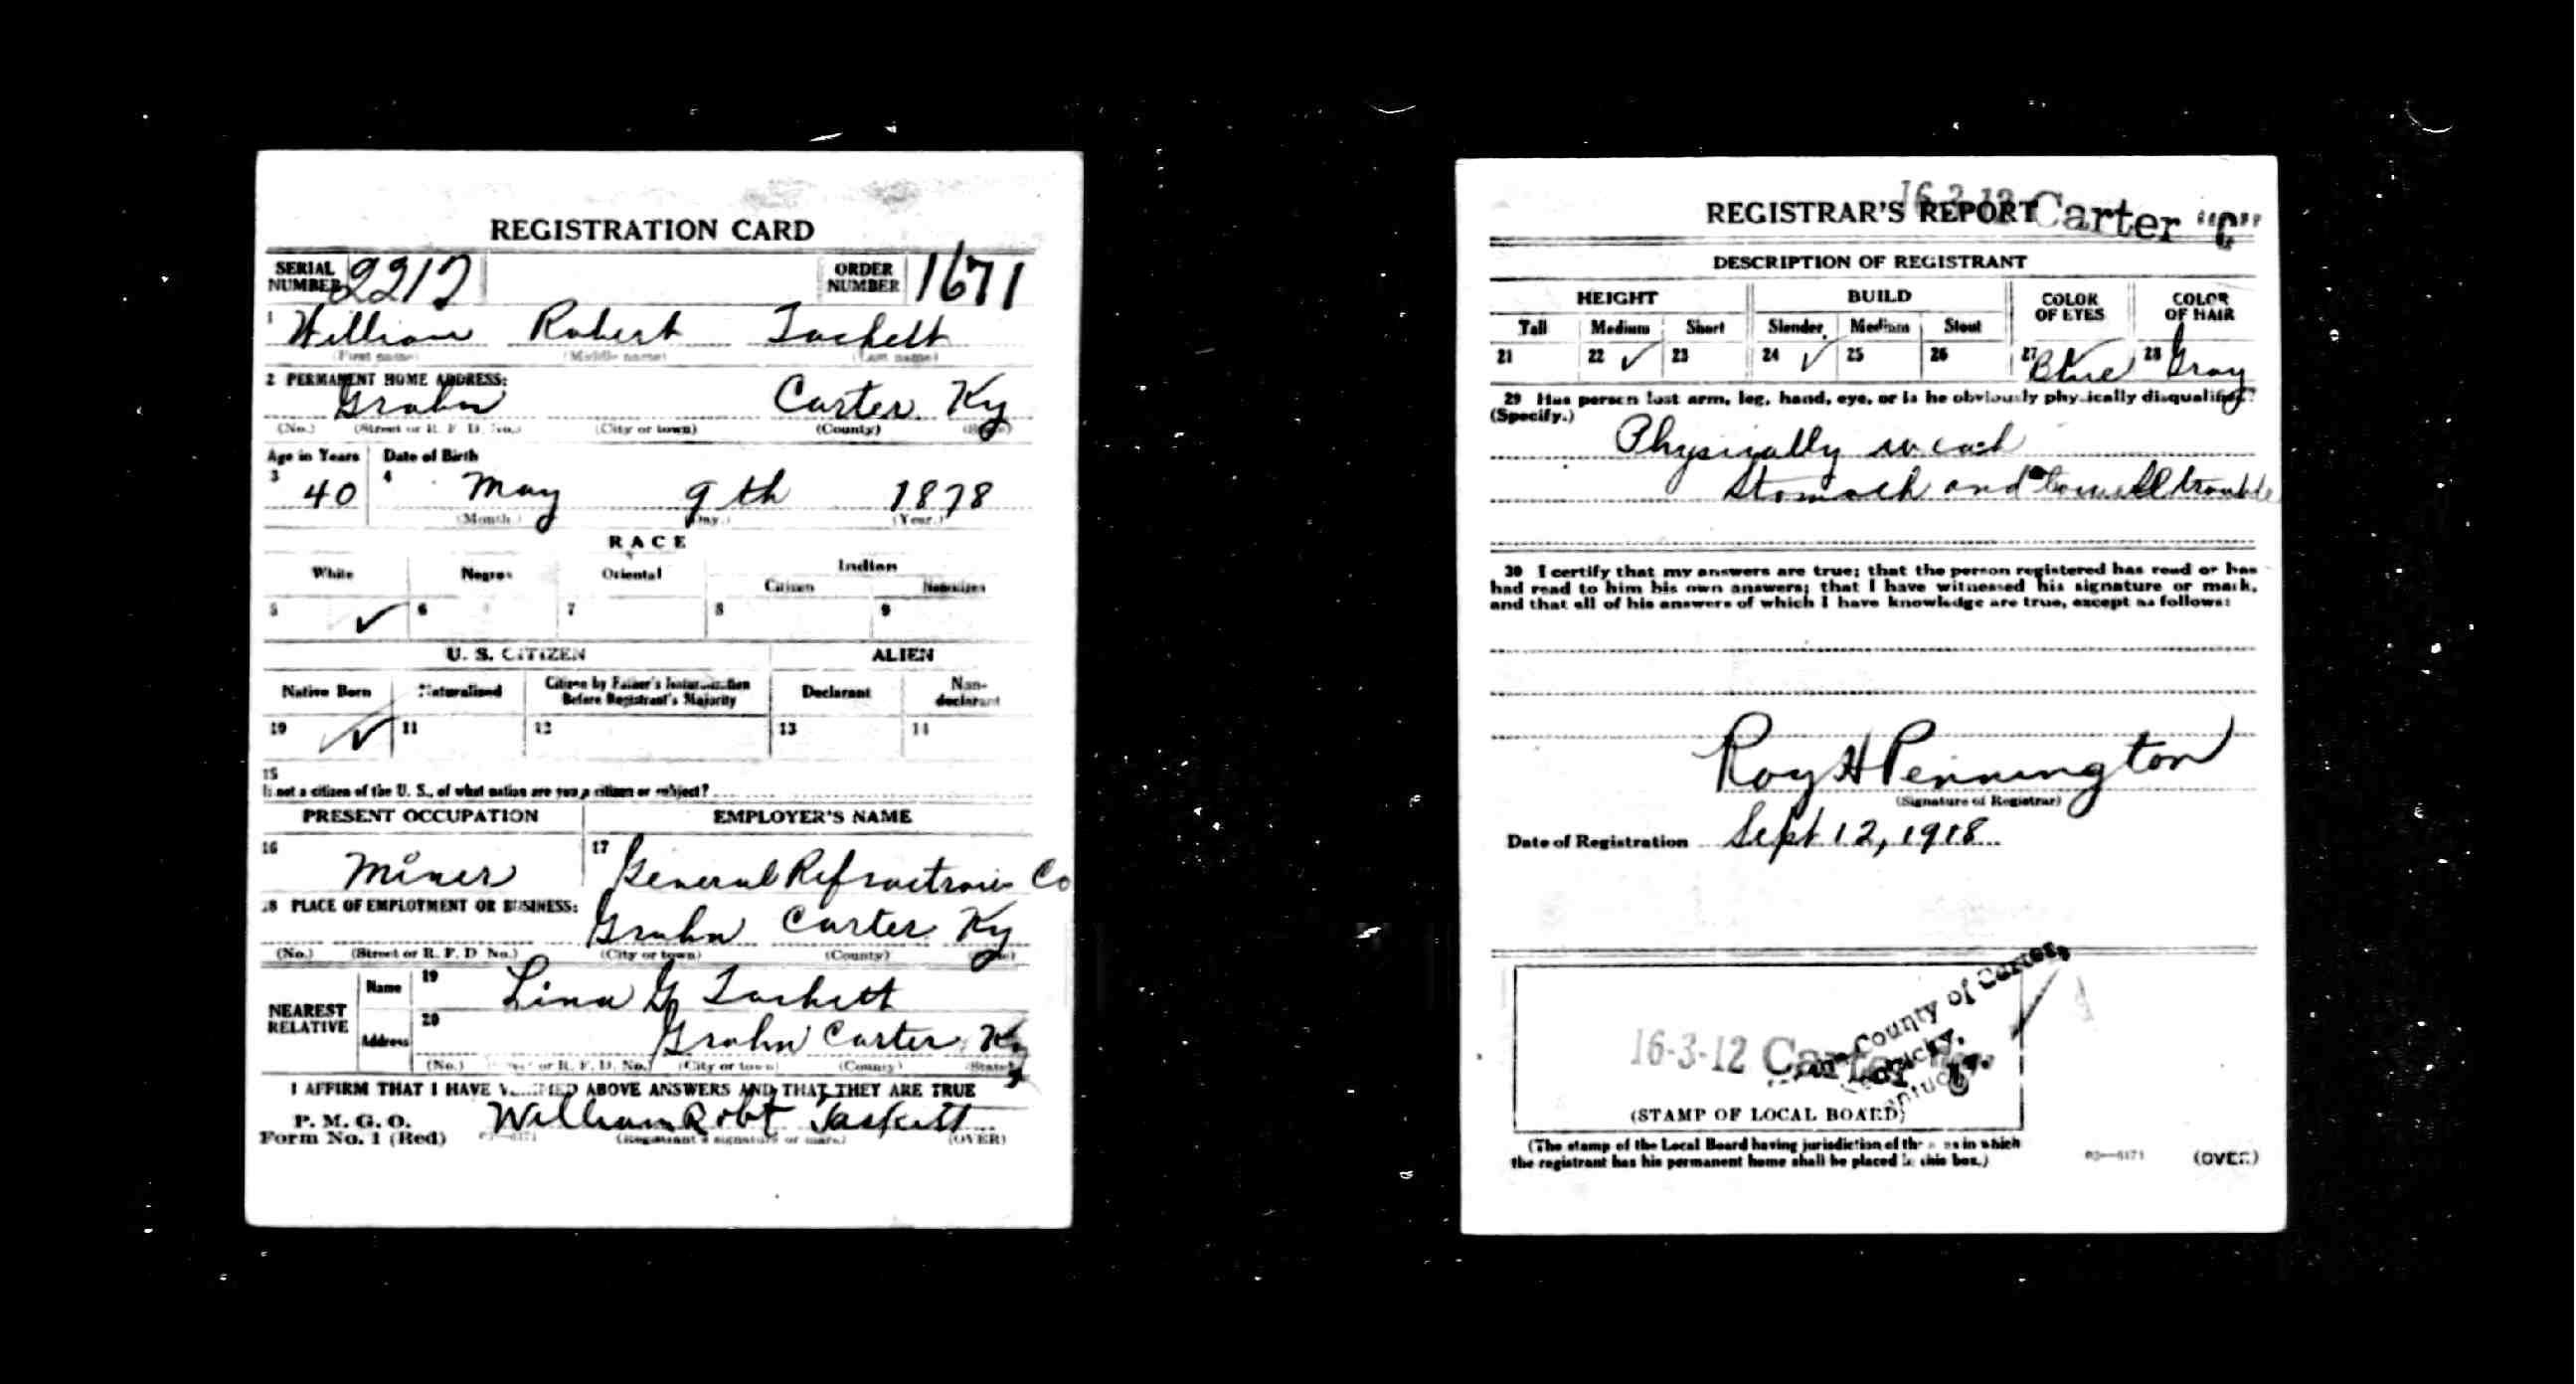 REGISTRATION CARD
SERIAL NUMBER 2217 ORDER NUMBER 1671
1 William Robert Tackett
(First name) (Middle name) (Last name)
2 PERMANENT HOME ADDRESS:
Grahn Carter Ky
(No.) (Street or R. F. D. No.) (City or town) (County) (State)
Age in Years Date of Birth
3 40 4 May 9th 1878
(Month.) (Day.) (Year.)
RACE
White Negro Oriental Indian
Citizen Noncitizen
5 ✓ 6 7 8 9
U. S. CITIZEN ALIEN
Native Born Naturalized Citizen by Father's Naturalization Before Registrant's Majority Declarant Non-declarant
10 ✓ 11 12 13 14
15
If not a citizen of the U. S., of what nation are you a citizen or subject?
PRESENT OCCUPATION EMPLOYER'S NAME
16 Miner 17 General Refractories Co
18 PLACE OF EMPLOYMENT OR BUSINESS:
Grahn Carter Ky
(No.) (Street or R. F. D. No.) (City or town) (County) (State)
NEAREST RELATIVE
Name 19 Lina G Tackett
Address 20 Grahn Carter Ky
(No.) (Street or R. F. D. No.) (City or town) (County) (State)
I AFFIRM THAT I HAVE VERIFIED ABOVE ANSWERS AND THAT THEY ARE TRUE
P. M. G. O.
Form No. 1 (Red) William Robt Tackett
(Registrant's signature or mark) (OVER)
16-3-12 Carter "C"
REGISTRAR'S REPORT
DESCRIPTION OF REGISTRANT
HEIGHT BUILD COLOR OF EYES COLOR OF HAIR
Tall Medium Short Slender Medium Stout
21 22 ✓ 23 24 ✓ 25 26 27 Blue 28 Gray
29 Has person lost arm, leg, hand, eye, or is he obviously physically disqualified?
(Specify.)
Physically weak
Stomach and bowell trouble
30 I certify that my answers are true; that the person registered has read or has
had read to him his own answers; that I have witnessed his signature or mark,
and that all of his answers of which I have knowledge are true, except as follows:
Roy H Pennington
(Signature of Registrar)
Date of Registration Sept 12, 1918
County of Carter,
16-3-12 Carter
(STAMP OF LOCAL BOARD)
(The stamp of the Local Board having jurisdiction of the area in which
the registrant has his permanent home shall be placed in this box.)
03—6171 (OVER)